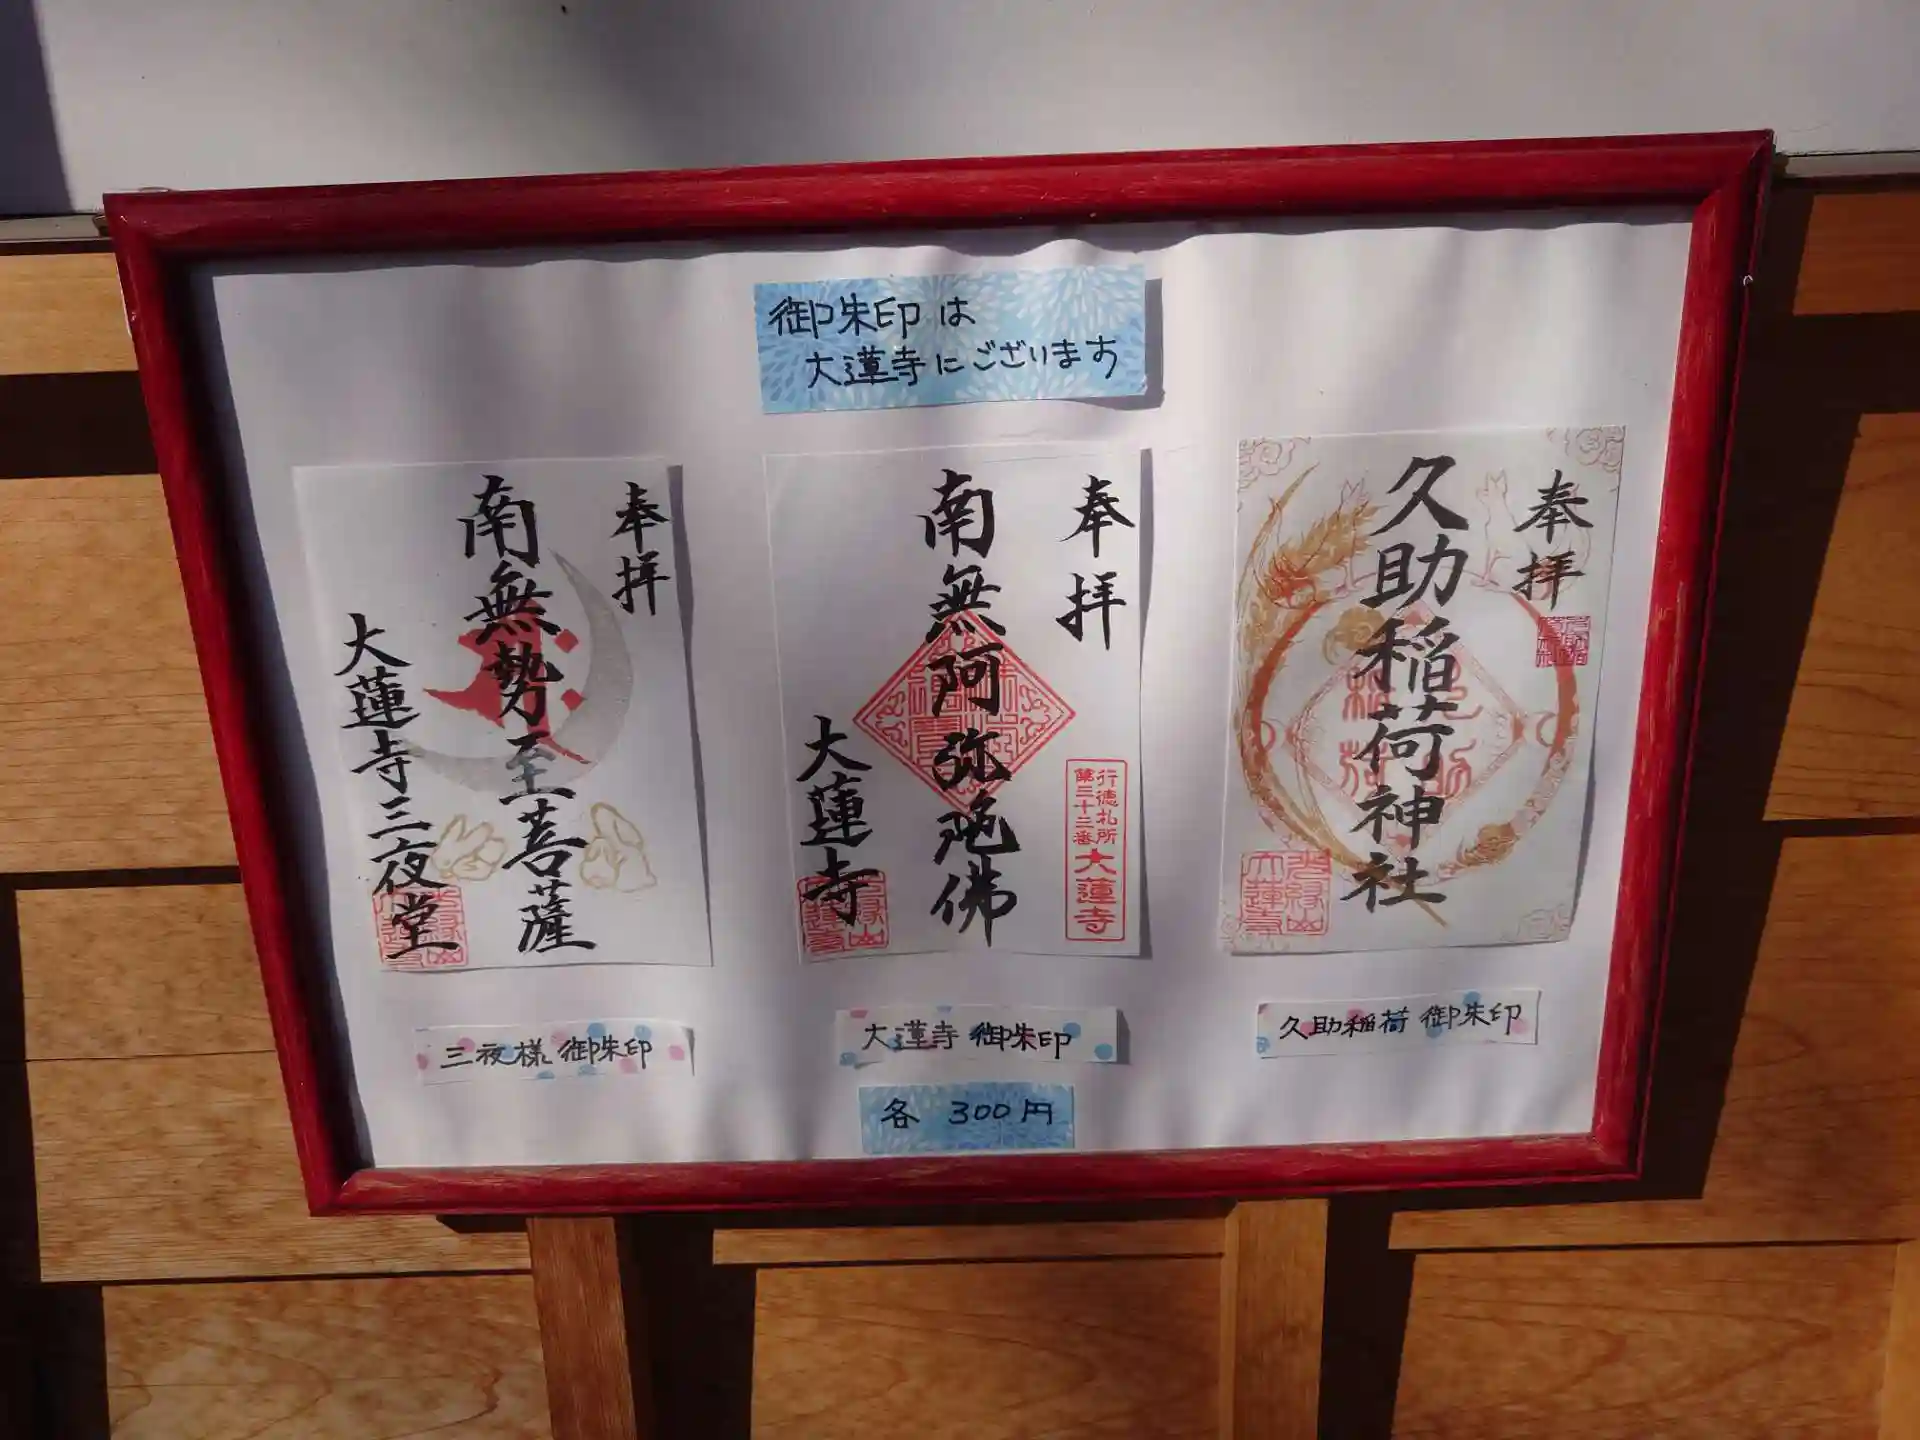 御朱印は
大蓮寺にございます
奉拝
南無勢至菩薩
大蓮寺三夜堂
三夜様 御朱印
奉拝
南無阿弥陀佛
行徳札所
第三十三番
大蓮寺
大蓮寺
大蓮寺 御朱印
奉拝
久助稲荷神社
久助稲荷 御朱印
各 300円